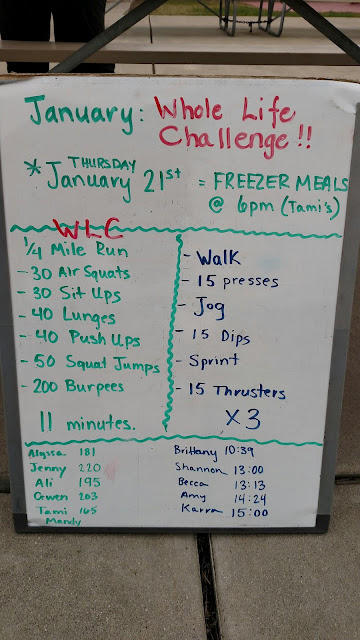 January: Whole Life
Challenge!!
* THURSDAY
January 21st = FREEZER MEALS
@ 6pm (Tami's)
WLC
1/4 Mile Run
- 30 Air Squats
- 30 Sit Ups
- 40 Lunges
- 40 Push Ups
- 50 Squat Jumps
- 200 Burpees
11 minutes.
- Walk
- 15 presses
- Jog
- 15 Dips
- Sprint
- 15 Thrusters
X3
Alyssa 181
Jenny 220
Ali 195
Gwen 203
Tami 165
Mandy
Brittany 10:39
Shannon 13:00
Becca 13:13
Amy 14:24
Karra 15:00